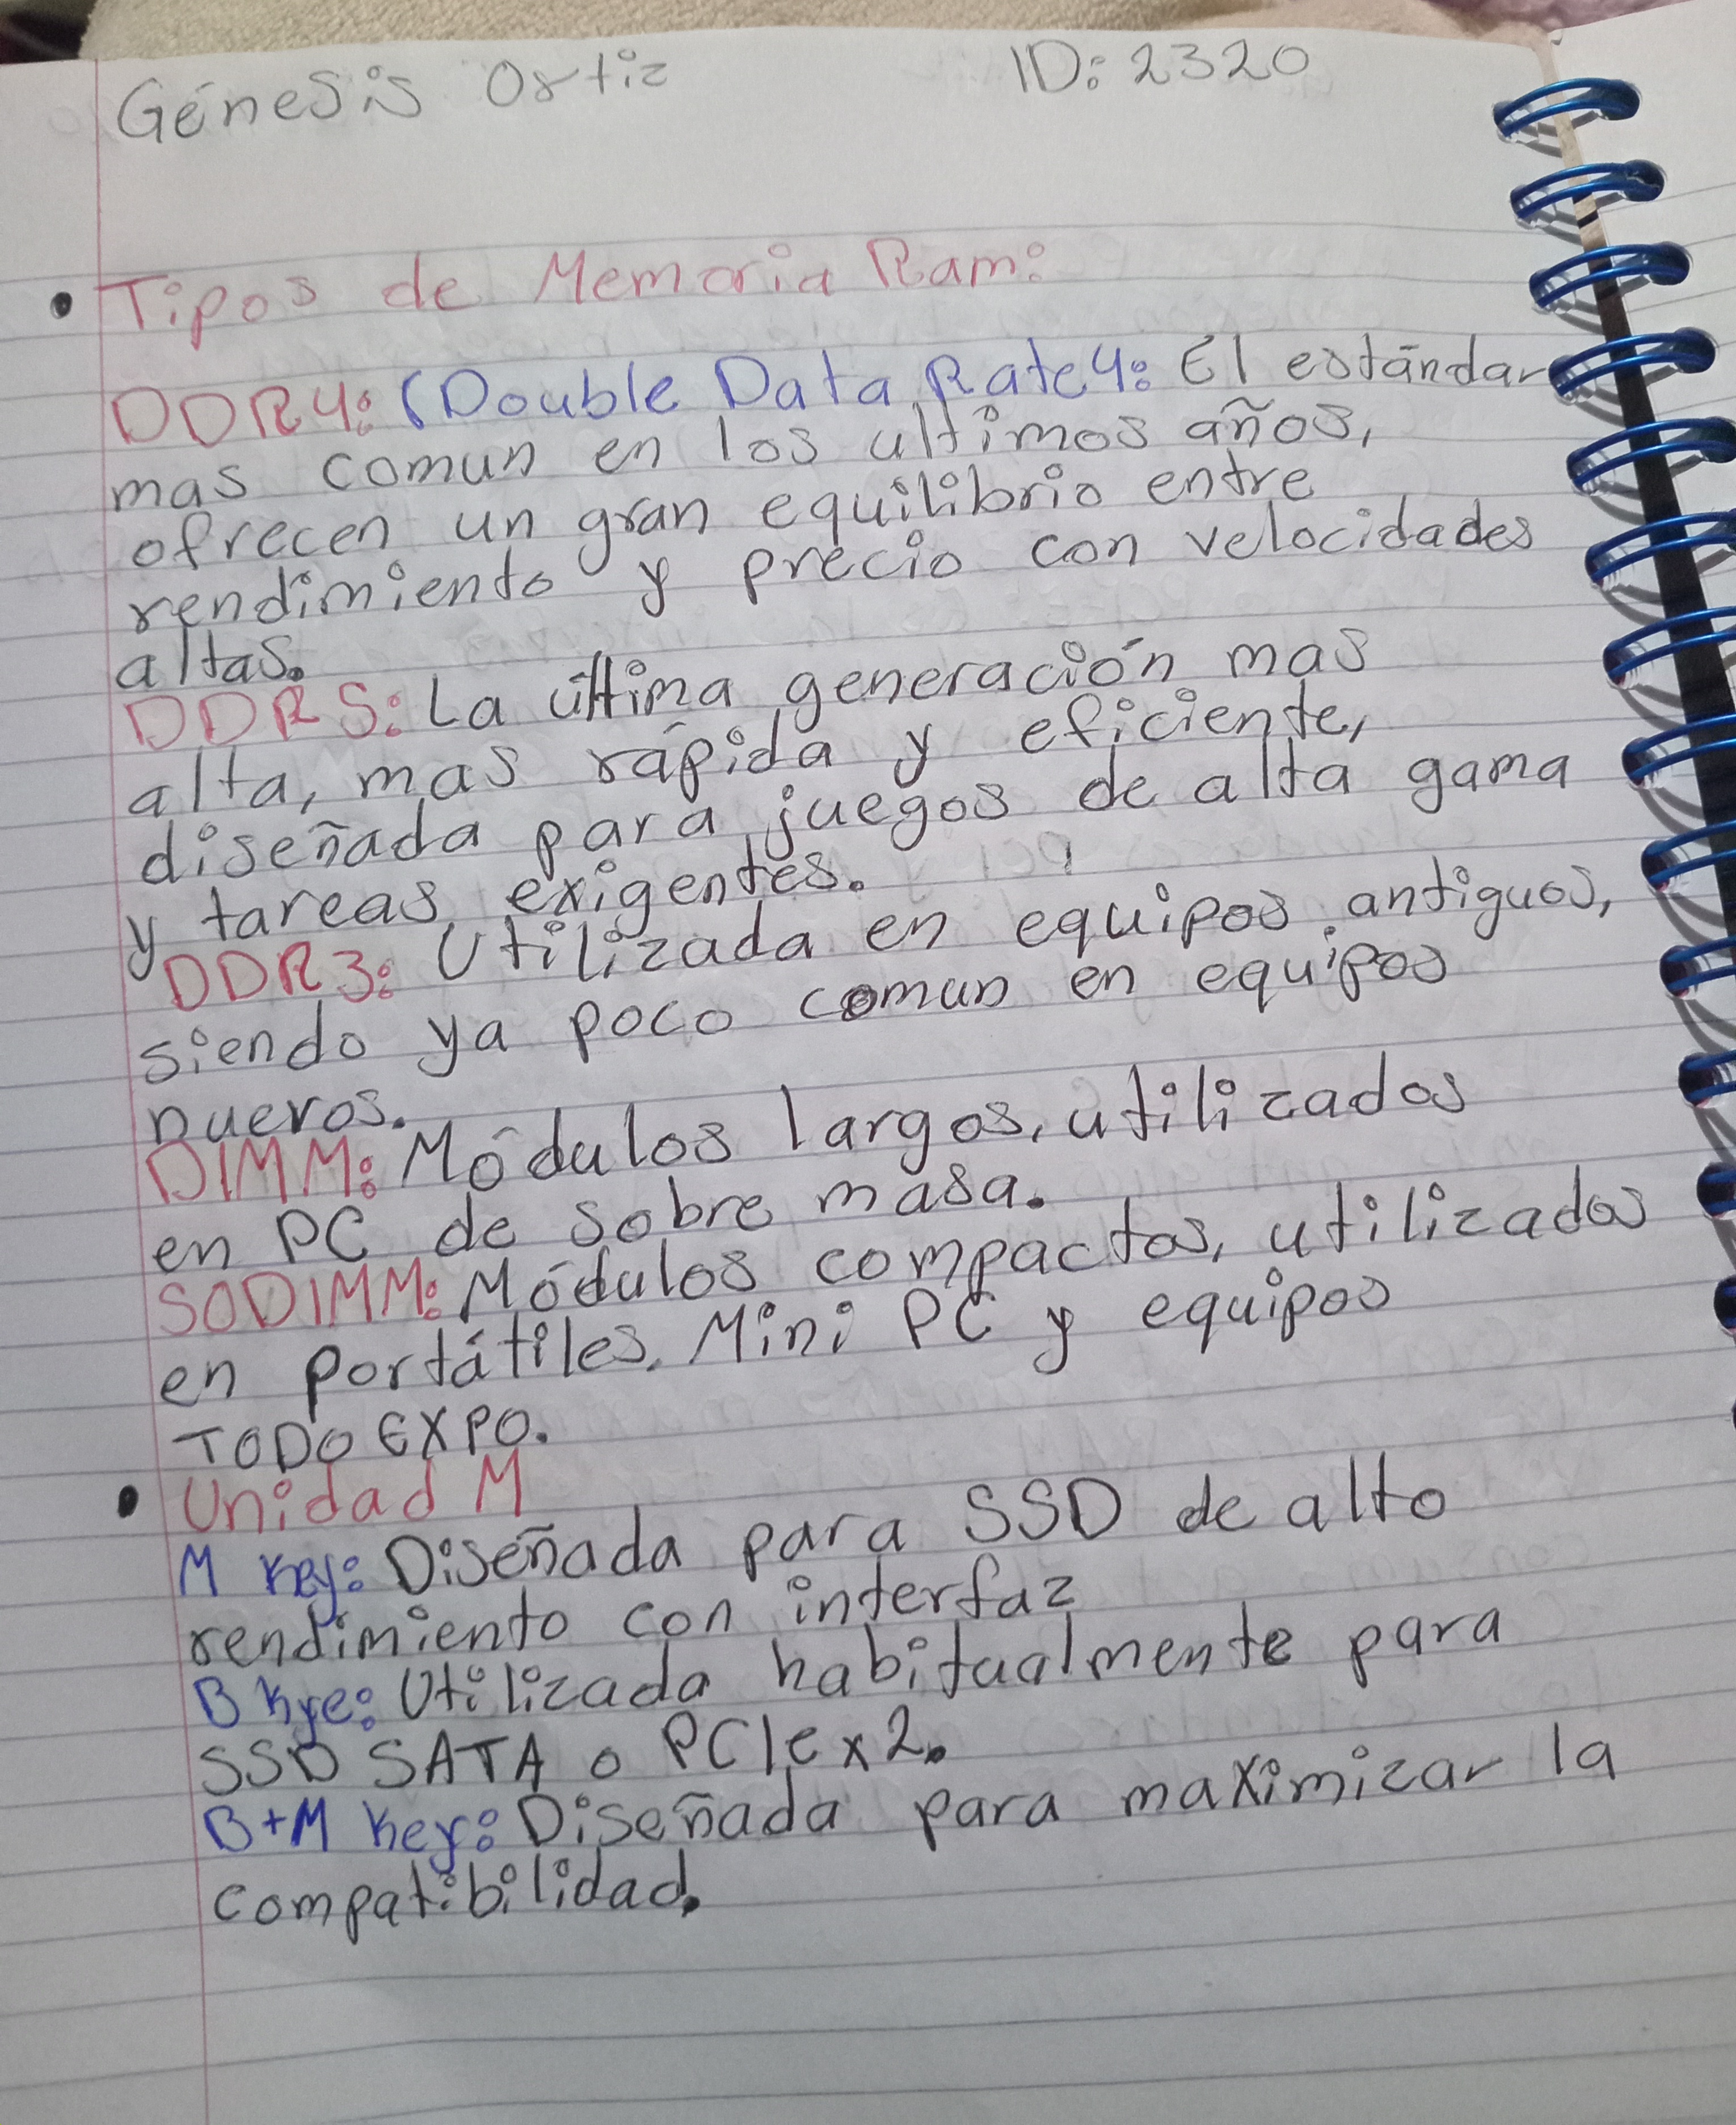 Génesis Ortiz ID: 2320
• Tipos de Memoria Ram:
DDR4: (Double Data Rate4: El estándar
mas comun en los ultimos años,
ofrecen un gran equilibrio entre
rendimiento y precio con velocidades
altas.
DDR5: La última generación mas
alta, mas rápida y eficiente,
diseñada para juegos de alta gama
y tareas exigentes.
DDR3: Utilizada en equipos antiguos,
siendo ya poco comun en equipos
nuevos.
DIMM: Módulos largos, utilizados
en PC de sobre masa.
SODIMM: Módulos compactos, utilizados
en portátiles, Mini PC y equipos
TODO EXPO.
• Unidad M
M Key: Diseñada para SSD de alto
rendimiento con interfaz
B kye: Utilizada habitualmente para
SSD SATA o PCIe x2.
B+M key: Diseñada para maximizar la
compatibilidad.